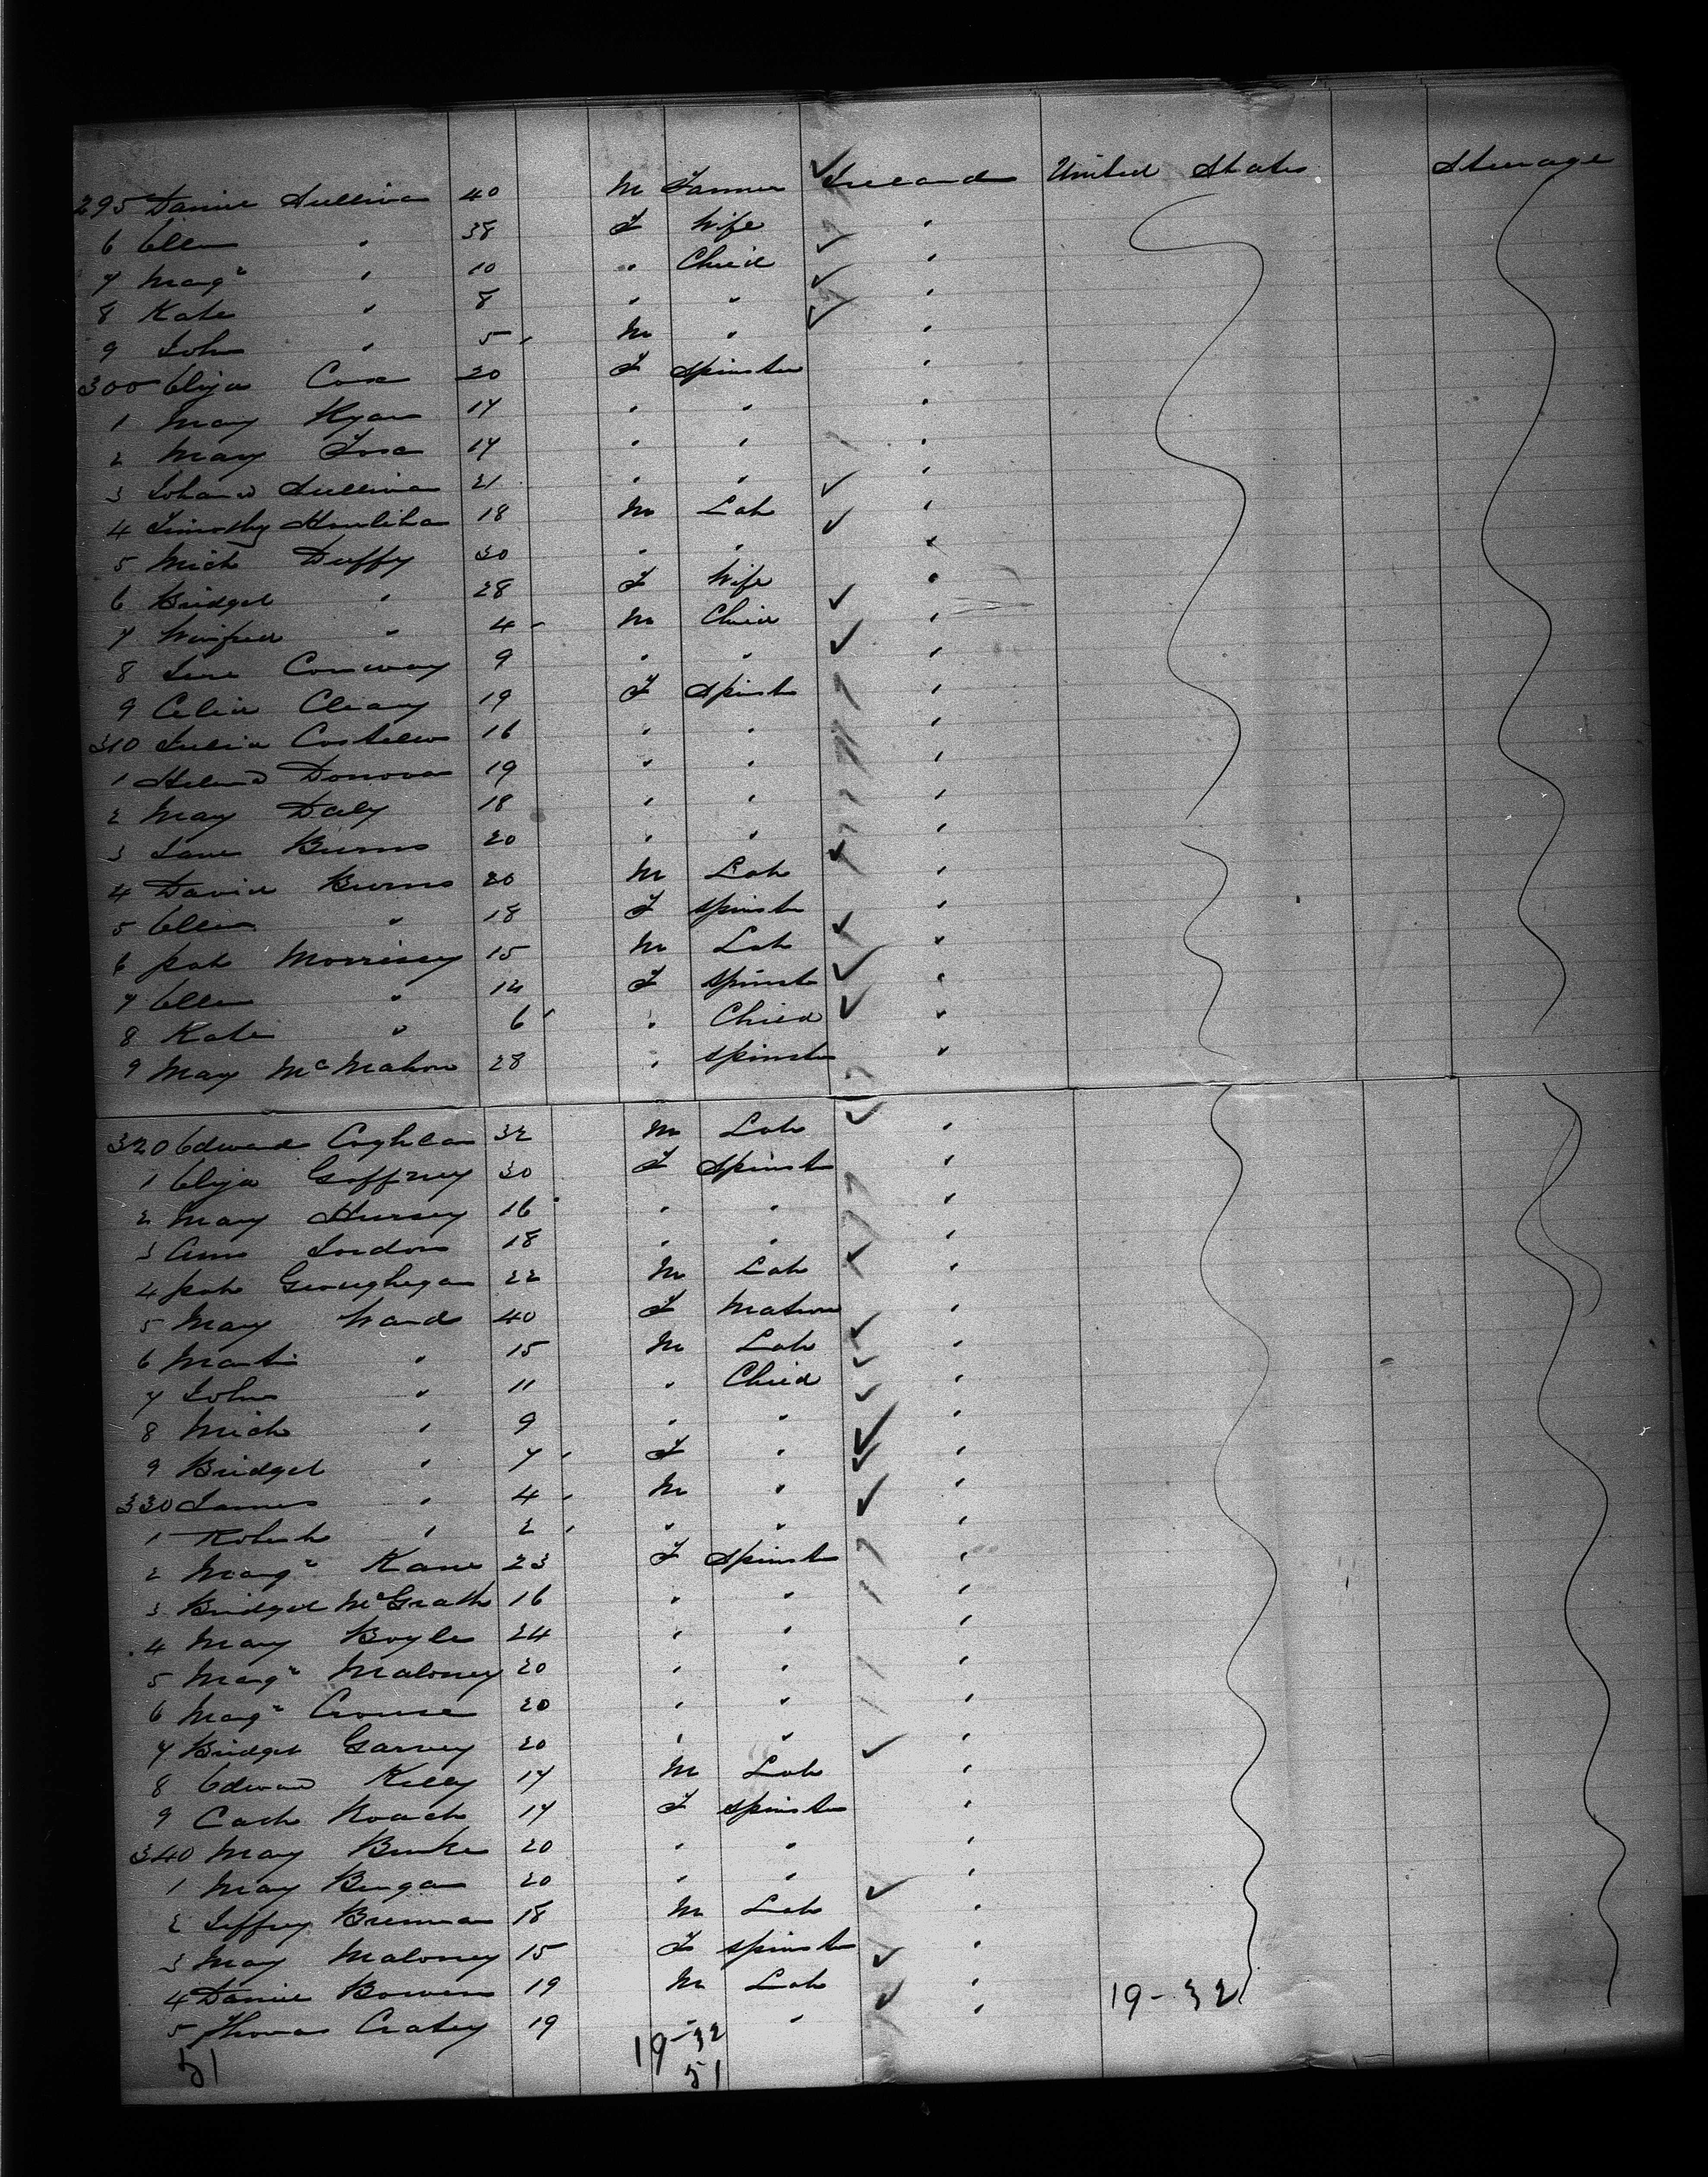 295 Daniel Sullivan 40 M Farmer Ireland United States Steerage
6 Ellen " 38 F Wife "
7 Margt " 10 " Child "
8 Kate " 8 " " "
9 John " 5 M " "
300 Eliza Cox 20 F Spinster "
1 Mary Ryan 17 " " "
2 Mary Fox 17 " " "
3 Johana Sullivan 21 " " "
4 Timothy Houlihan 18 M Lab "
5 Mich Duffy 30 " " "
6 Bridget " 28 F Wife "
7 Winifred " 4 M Child "
8 Jere Conway 9 " " "
9 Celia Cleary 19 F Spinst "
310 Julia Costello 16 " " "
1 Helena Donovan 19 " " "
2 Mary Daly 18 " " "
3 Jane Burns 20 " " "
4 David Burns 20 M Lab "
5 Ellen " 18 F Spinst "
6 Pat Morrissey 15 M Lab "
7 Ellen " 12 F Spinst "
8 Kate " 6 " Child "
9 Mary McMahon 28 " Spinster "
320 Edward Coghlan 32 M Lab "
1 Eliza Gaffney 30 F Spinst "
2 Mary Hursey 16 " " "
3 Ann Jordon 18 " " "
4 Pat Geoughegan 22 M Lab "
5 Mary Ward 40 F Matron "
6 Martin " 15 M Lab "
7 John " 11 " Child "
8 Mich " 9 " " "
9 Bridget " 7 F " "
330 James " 4 M " "
1 Robert " 2 " " "
2 Margt Kane 23 F Spinst "
3 Bridget McGrath 16 " " "
4 Mary Boyle 24 " " "
5 Margt Maloney 20 " " "
6 Margt 20 " " "
7 Bridget Garvey 20 " " "
8 Edward Kelly 17 M Lab "
9 Cath Roach 17 F Spinster "
340 Mary Burke 20 " " "
1 Mary 20 " " "
2 Jeffrey Brennan 18 M Lab "
3 Mary Maloney 15 F Spinst "
4 Daniel Bowen 19 M Lab "
5 Thomas 19 " " "
19-32
51 19-32
51